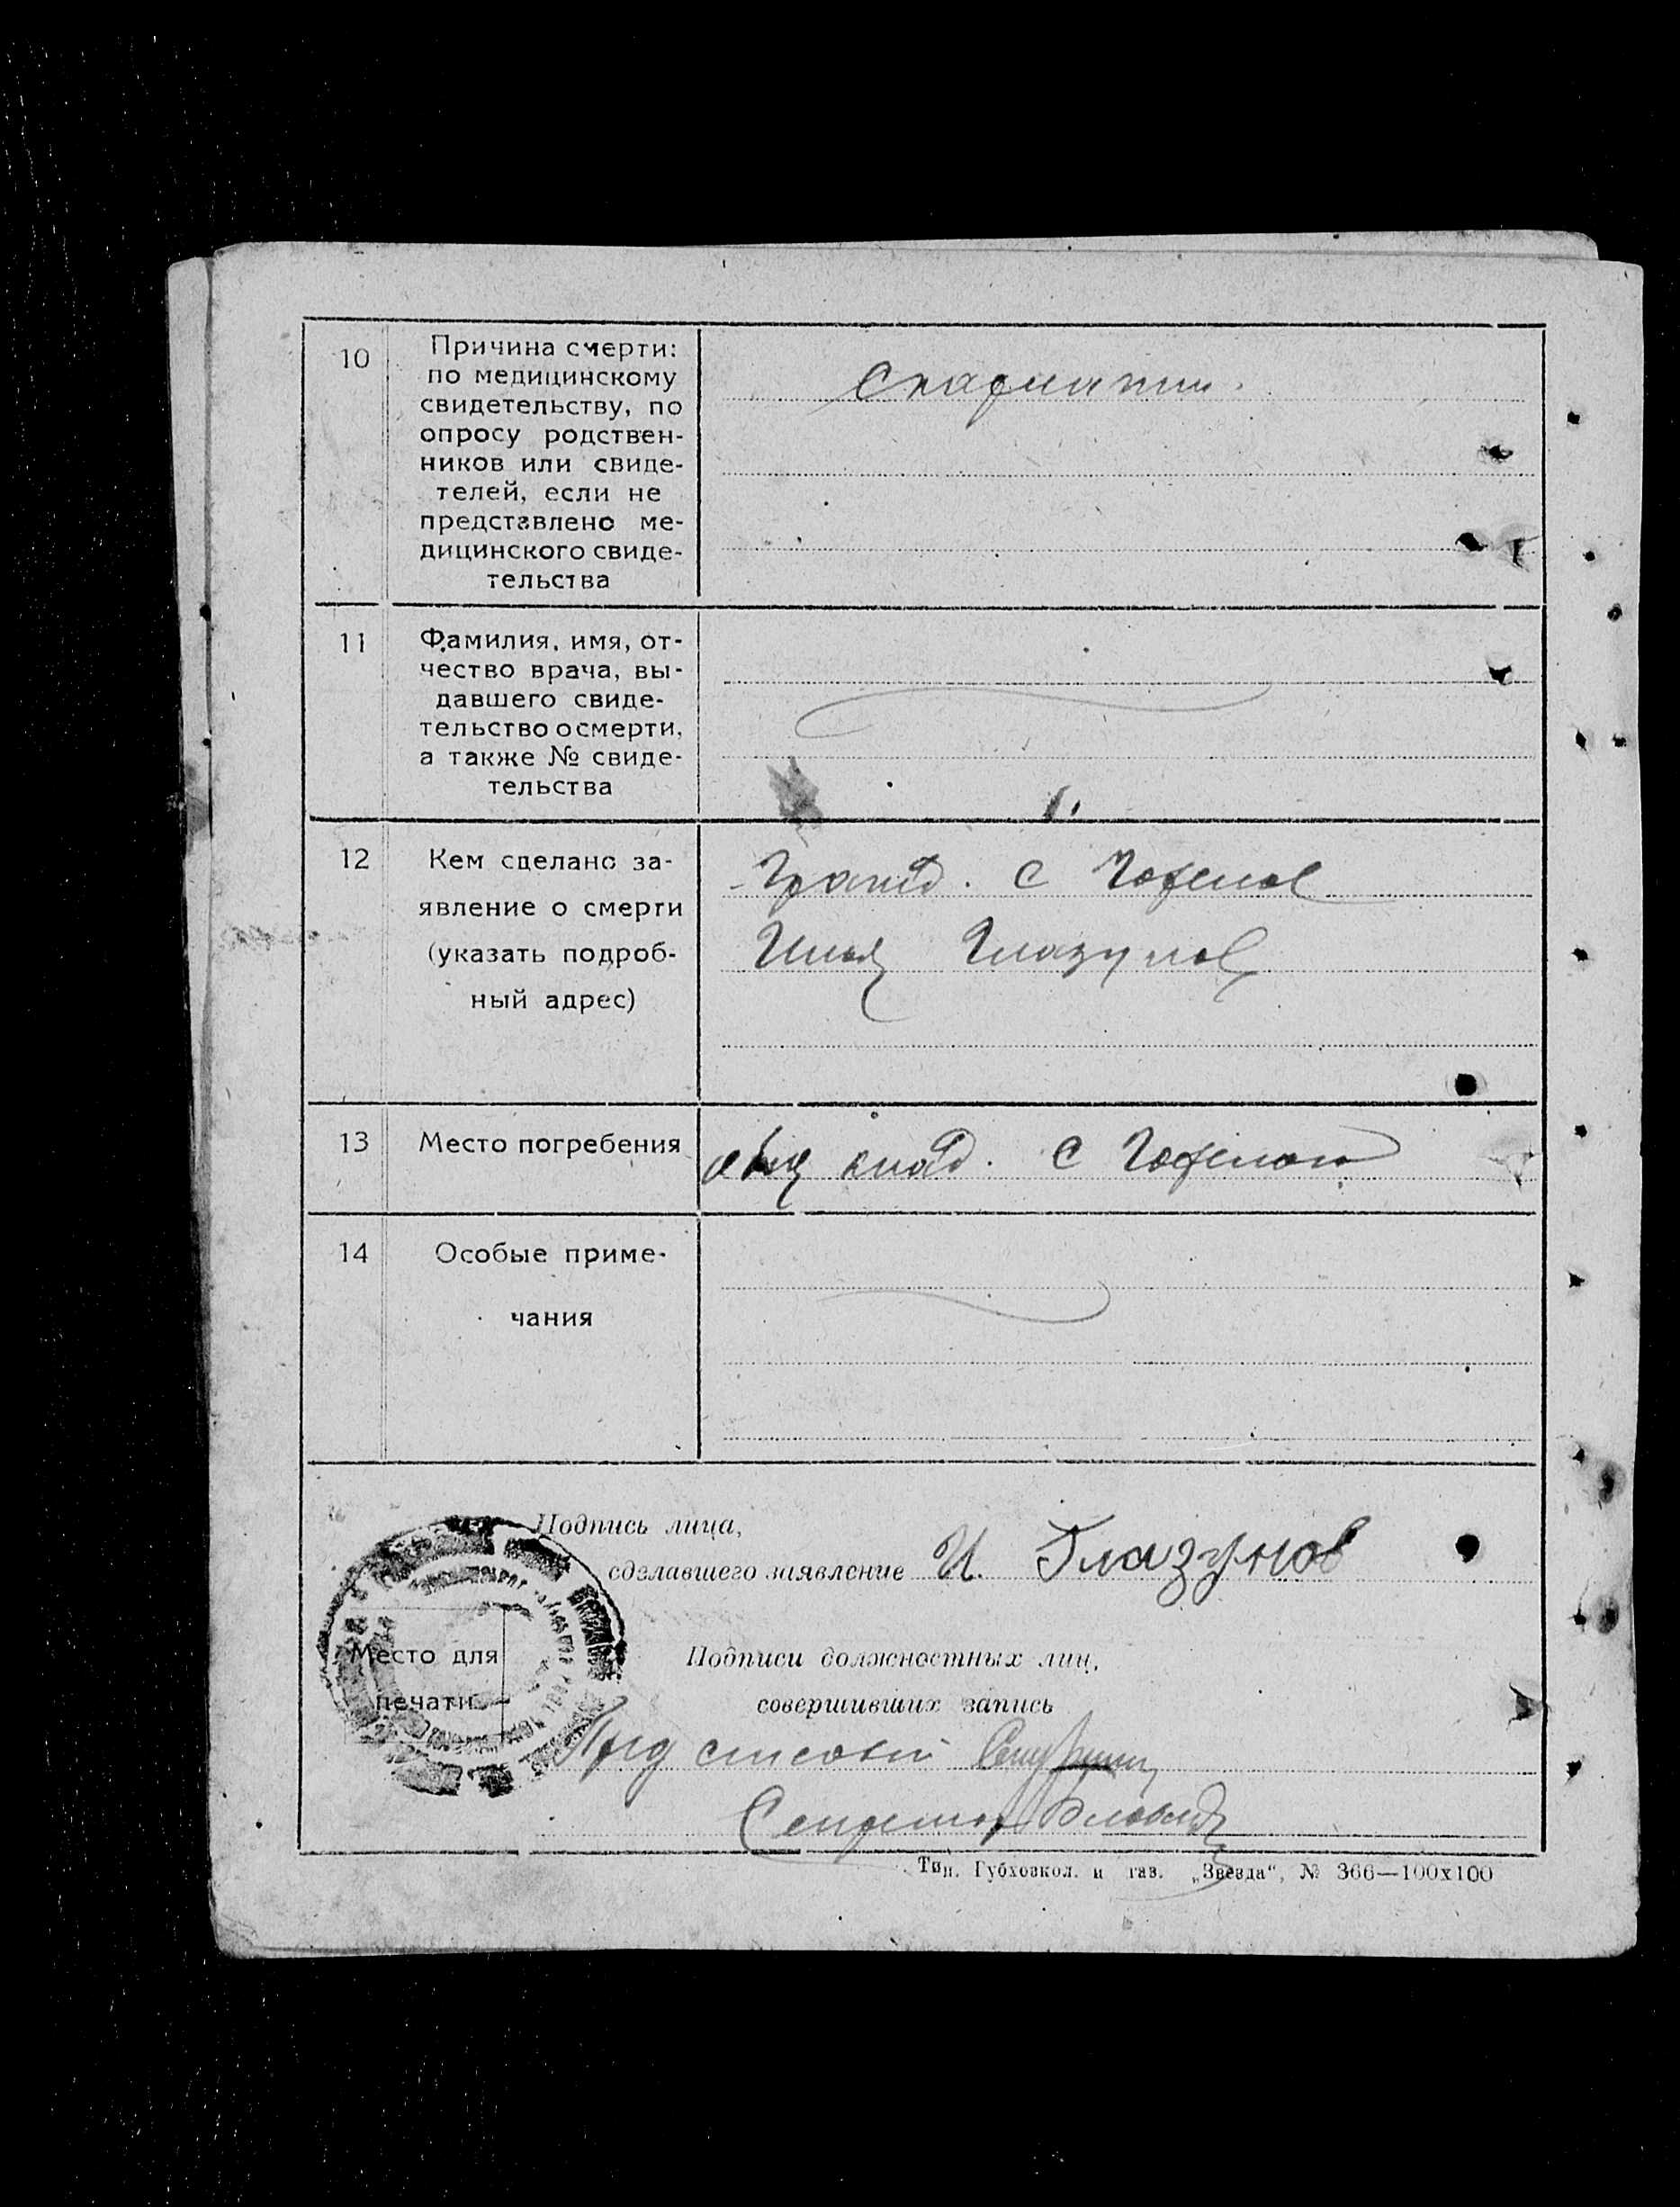 10
Причина смерти:
по медицинскому
свидетельству, по
опросу родствен-
ников или свиде-
телей, если не
представлено ме-
дицинского свиде-
тельства
11
Фамилия, имя, от-
чество врача, вы-
давшего свиде-
тельство о смерти,
а также № свиде-
тельства
12
Кем сделано за-
явление о смерти
(указать подроб-
ный адрес)
Гражд. С
Илья Глазунов
13
Место погребения
кладб. С
14
Особые приме-
чания
Подпись лица,
сделавшего заявление И. Глазунов
Место для
печати
Подписи должностных лиц,
совершивших запись
Пред
Секретар
Тип. Губхозкол. и газ. „Звезда“, № 366—100х100